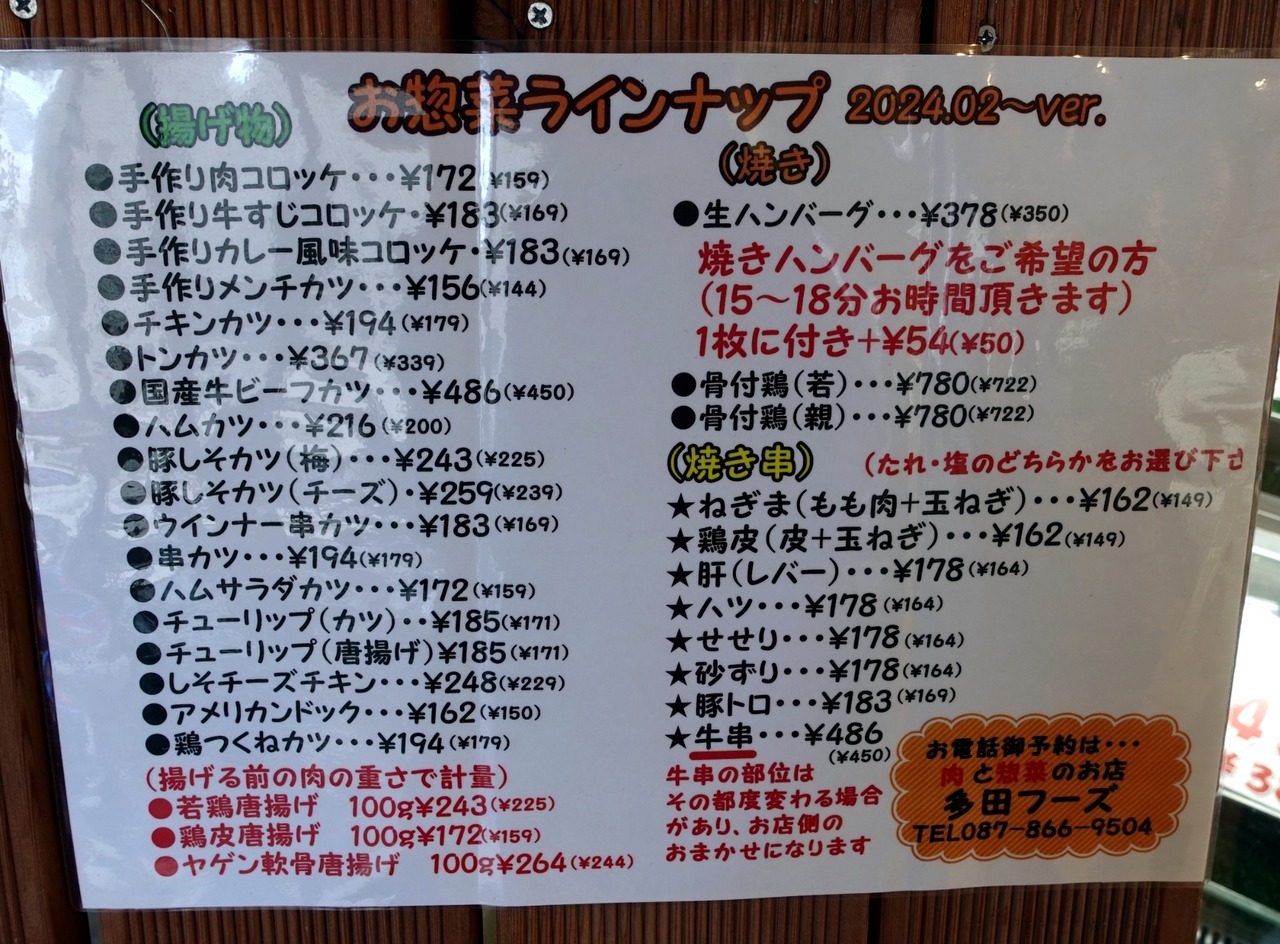 お惣菜ラインナップ 2024.02～ver.
(揚げ物)
●手作り肉コロッケ･･･¥172(¥159)
●手作り牛すじコロッケ･¥183(¥169)
●手作りカレー風味コロッケ･¥183(¥169)
●手作りメンチカツ･･･¥156(¥144)
●チキンカツ･･･¥194(¥179)
●トンカツ･･･¥367(¥339)
●国産牛ビーフカツ･･･¥486(¥450)
●ハムカツ･･･¥216(¥200)
●豚しそカツ(梅)･･･¥243(¥225)
●豚しそカツ(チーズ)･¥259(¥239)
●ウインナー串カツ･･･¥183(¥169)
●串カツ･･･¥194(¥179)
●ハムサラダカツ･･･¥172(¥159)
●チューリップ(カツ)･･¥185(¥171)
●チューリップ(唐揚げ)¥185(¥171)
●しそチーズチキン･･･¥248(¥229)
●アメリカンドック･･･¥162(¥150)
●鶏つくねカツ･･･¥194(¥179)
(揚げる前の肉の重さで計量)
●若鶏唐揚げ 100g¥243(¥225)
●鶏皮唐揚げ 100g¥172(¥159)
●ヤゲン軟骨唐揚げ 100g¥264(¥244)
(焼き)
●生ハンバーグ･･･¥378(¥350)
焼きハンバーグをご希望の方
(15～18分お時間頂きます)
1枚に付き+¥54(¥50)
●骨付鶏(若)･･･¥780(¥722)
●骨付鶏(親)･･･¥780(¥722)
(焼き串) (たれ･塩のどちらかをお選び下さ
★ねぎま(もも肉+玉ねぎ)･･･¥162(¥149)
★鶏皮(皮+玉ねぎ)･･･¥162(¥149)
★肝(レバー)･･･¥178(¥164)
★ハツ･･･¥178(¥164)
★せせり･･･¥178(¥164)
★砂ずり･･･¥178(¥164)
★豚トロ･･･¥183(¥169)
★牛串･･･¥486
(¥450)
牛串の部位は
その都度変わる場合
があり、お店側の
おまかせになります
お電話御予約は･･･
肉と惣菜のお店
多田フーズ
TEL087-866-9504